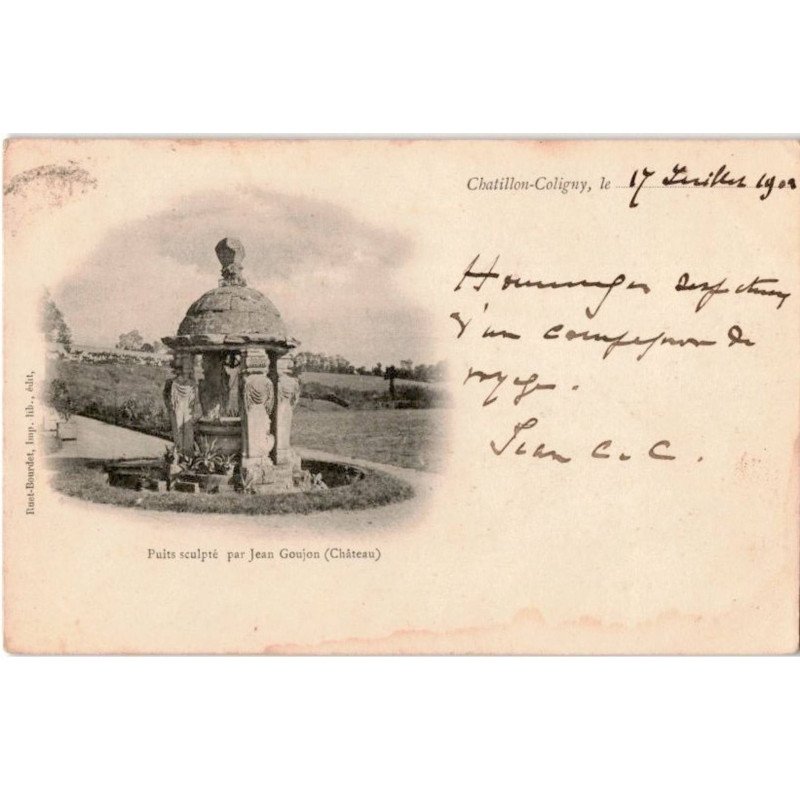 Chatillon-Coligny, le 17 Juillet 190
Hommages respectueux
d'un compagnon de
voyage.
Jean C. C.
Ruet-Bourdet, Imp. lib., édit,
Puits sculpté par Jean Goujon (Château)